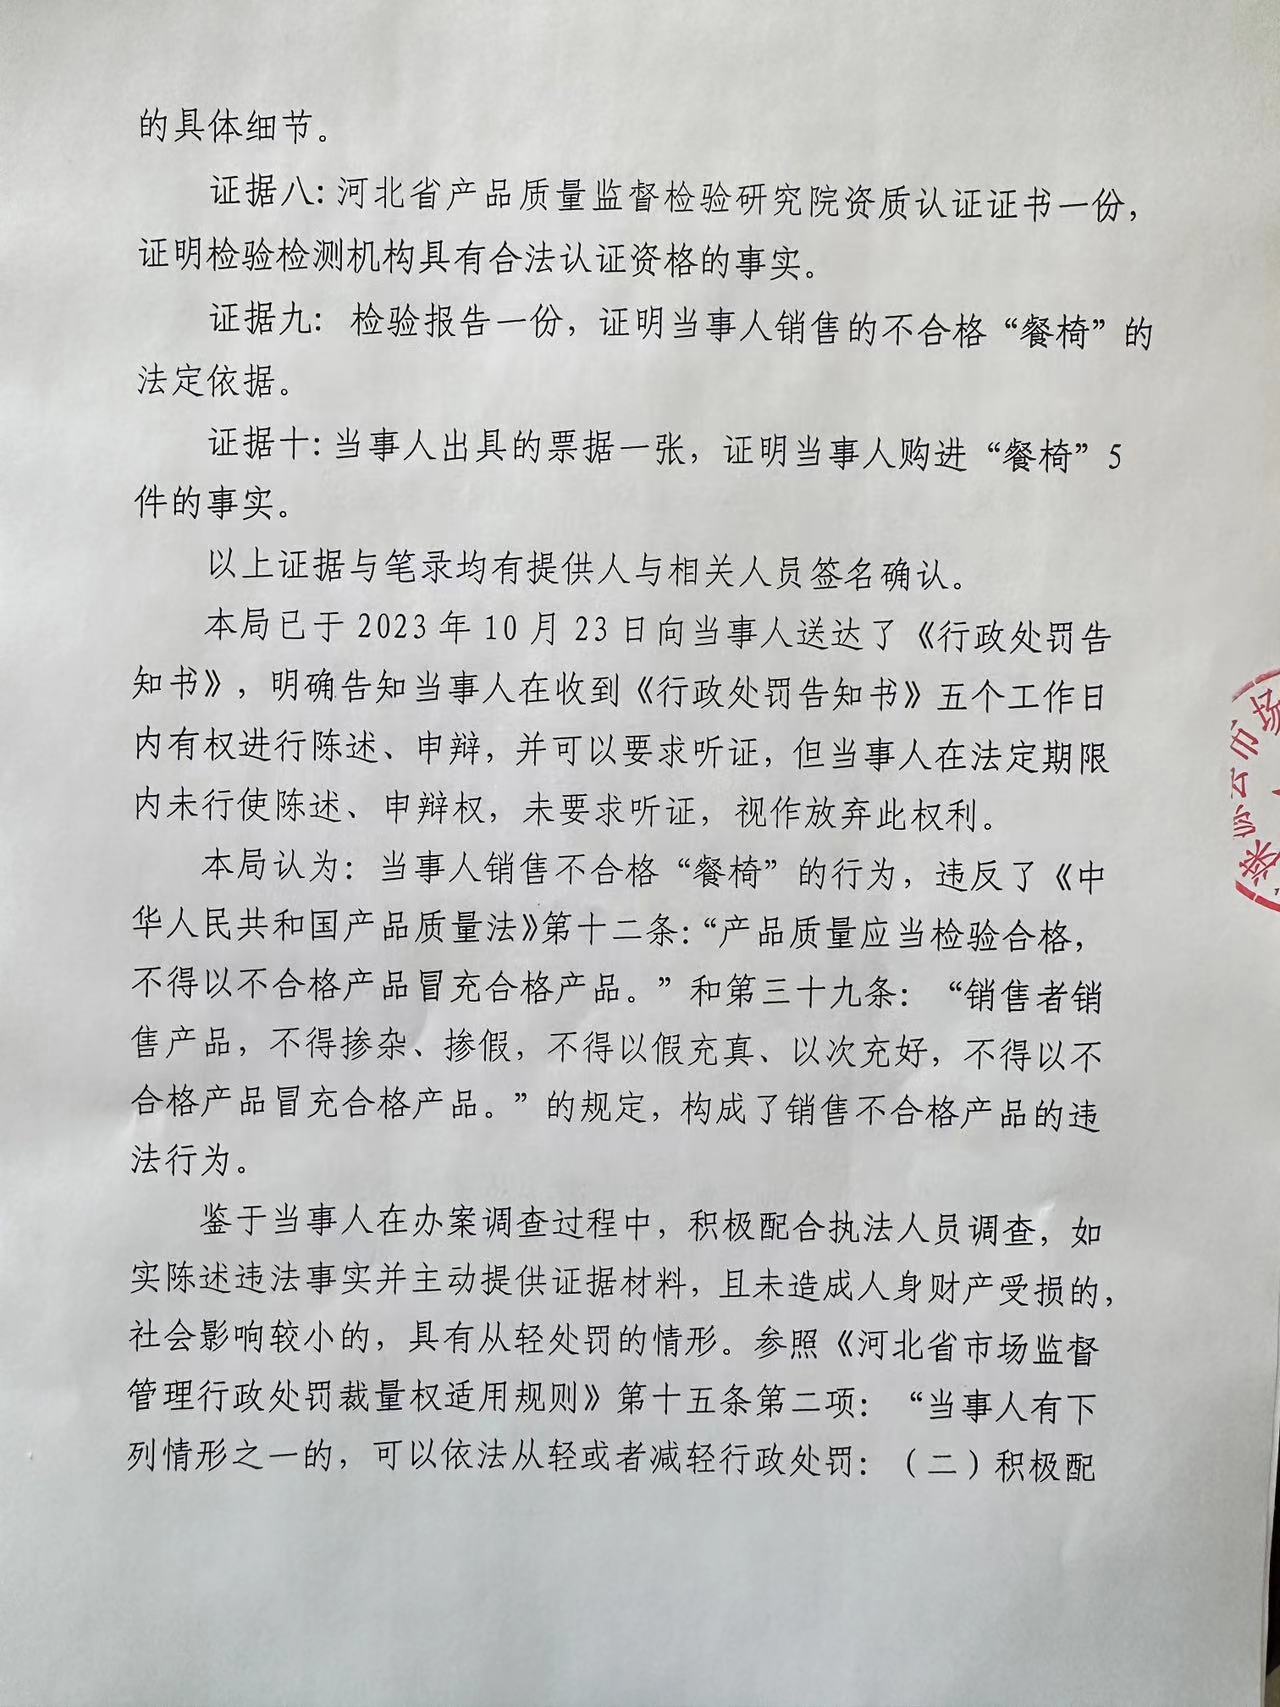 的具体细节。
证据八：河北省产品质量监督检验研究院资质认证证书一份，
证明检验检测机构具有合法认证资格的事实。
证据九： 检验报告一份，证明当事人销售的不合格“餐椅”的
法定依据。
证据十：当事人出具的票据一张，证明当事人购进“餐椅”5
件的事实。
以上证据与笔录均有提供人与相关人员签名确认。
本局已于 2023 年 10 月 23 日向当事人送达了《行政处罚告
知书》，明确告知当事人在收到《行政处罚告知书》五个工作日
内有权进行陈述、申辩，并可以要求听证，但当事人在法定期限
内未行使陈述、申辩权，未要求听证，视作放弃此权利。
本局认为：当事人销售不合格“餐椅”的行为，违反了《中
华人民共和国产品质量法》第十二条：“产品质量应当检验合格，
不得以不合格产品冒充合格产品。”和第三十九条：“销售者销
售产品，不得掺杂、掺假，不得以假充真、以次充好，不得以不
合格产品冒充合格产品。”的规定，构成了销售不合格产品的违
法行为。
鉴于当事人在办案调查过程中，积极配合执法人员调查，如
实陈述违法事实并主动提供证据材料，且未造成人身财产受损的，
社会影响较小的，具有从轻处罚的情形。参照《河北省市场监督
管理行政处罚裁量权适用规则》第十五条第二项：“当事人有下
列情形之一的，可以依法从轻或者减轻行政处罚：（二）积极配
市场